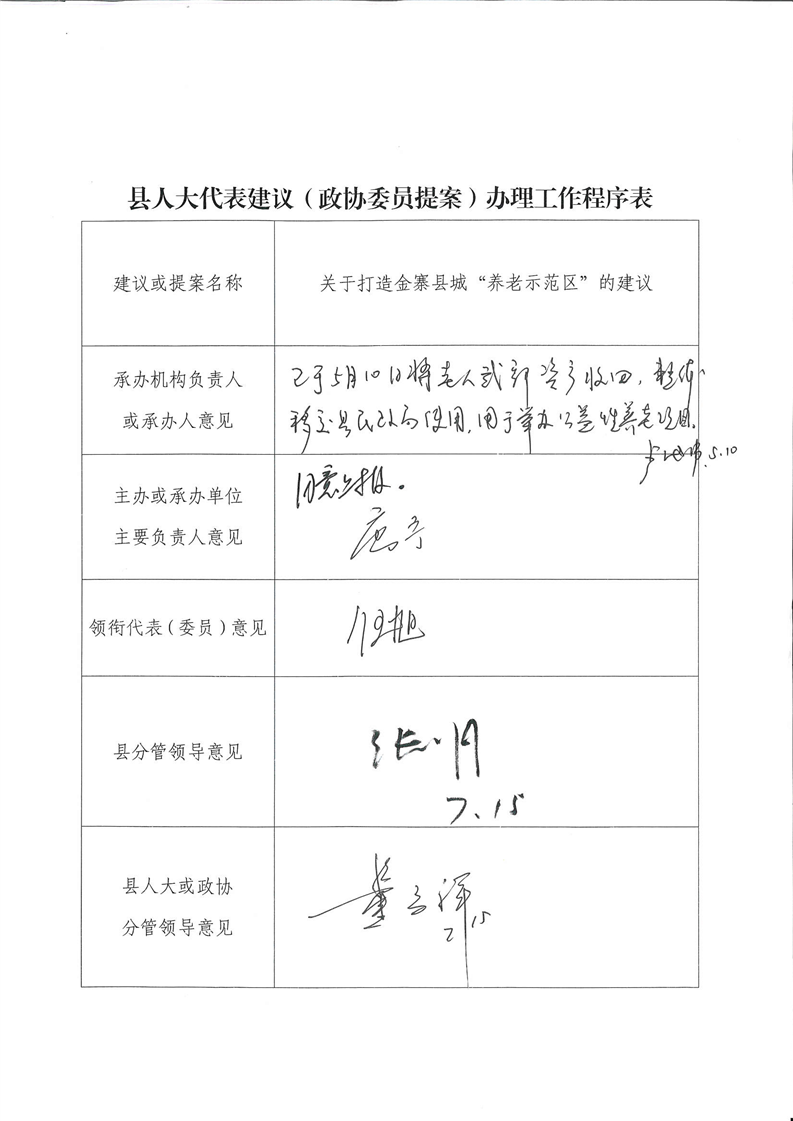 县人大代表建议（政协委员提案）办理工作程序表
建议或提案名称
关于打造金寨县城“养老示范区”的建议
承办机构负责人
或承办人意见
已于5月10日将老人武部资产收回，整体
移交县民政局使用，用于举办公益性养老项目。
5.10
主办或承办单位
主要负责人意见
同意上报。
领衔代表（委员）意见
县分管领导意见
7.15
县人大或政协
分管领导意见
7.15